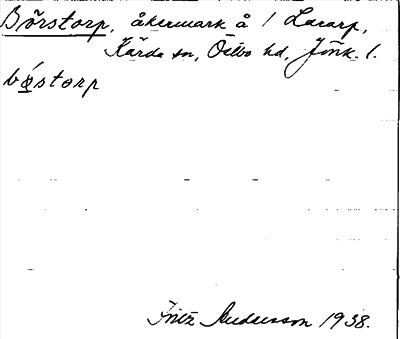 Börstorp, åkermark å 1 Lararp,
Kärda sn, Östbo hd, Jönk. l.
bǿstorp
Fritz Andersson 1938.